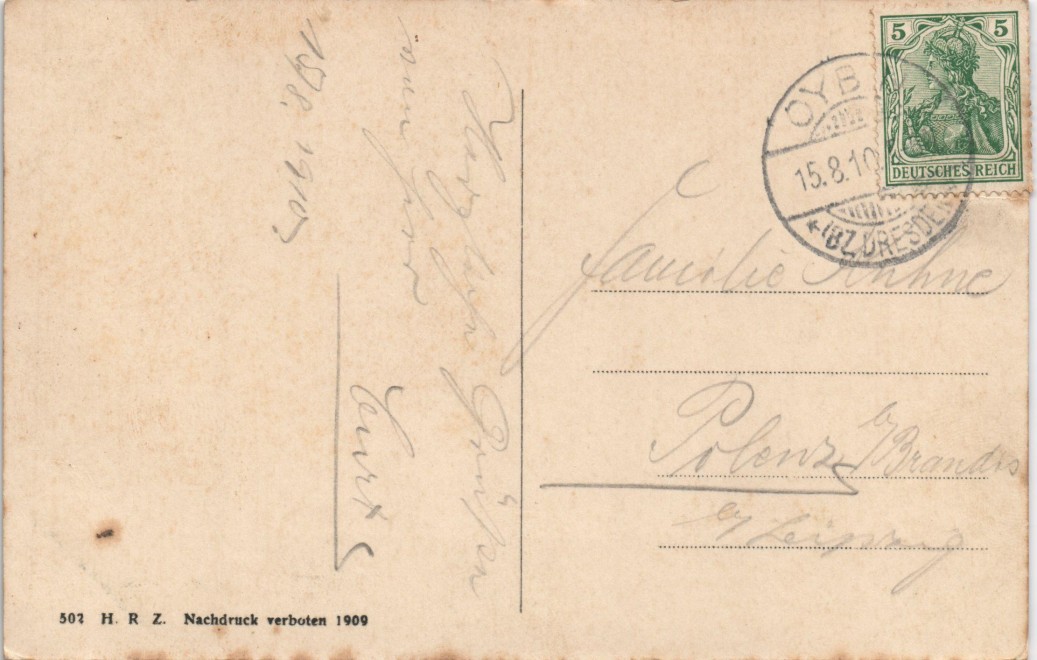 15/8. 1910
Herzliche Grüße
von hier
Curt
5 5
DEUTSCHES REICH
OYB
15.8.10
*(BZ. DRESDEN
Familie Kühne
Polenz b/Brandis
b/Leipzig
502 H. R. Z. Nachdruck verboten 1909